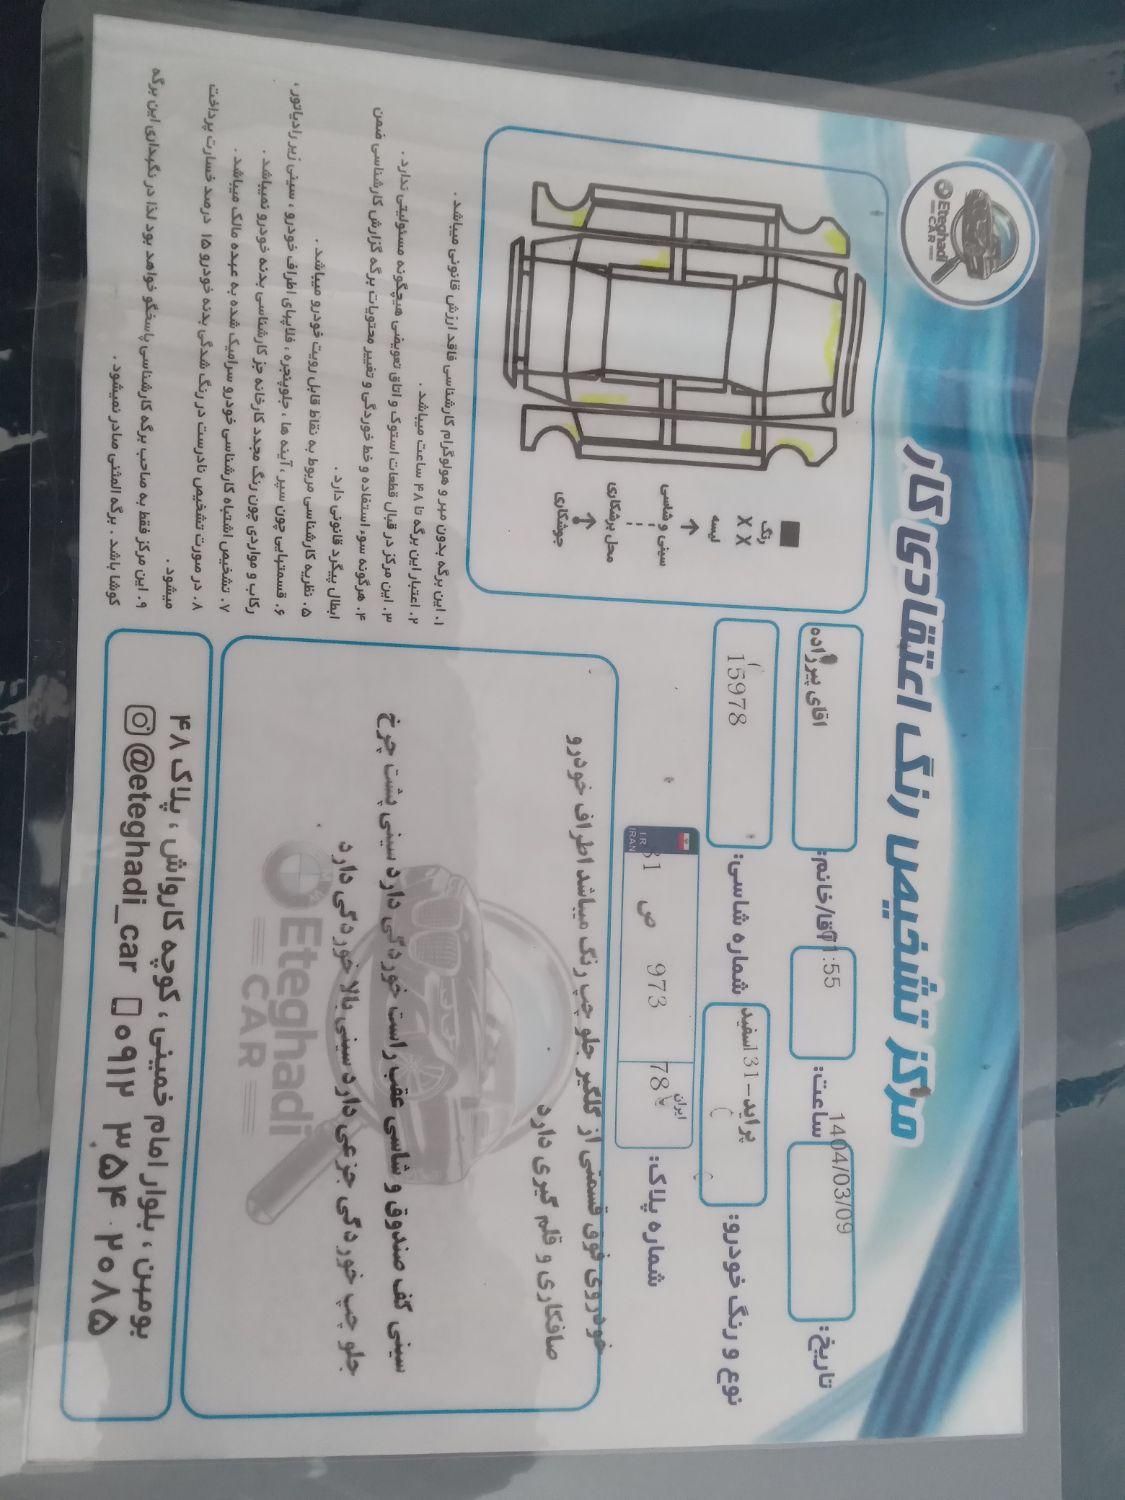 Eteghadi
CAR
مرکز تشخیص رنگ اعتقادی کار
تاریخ: 1404/03/09
ساعت: 11:55
آقا/خانم: اقای پیرزاده
نوع و رنگ خودرو: پراید-131 اسفید
شماره شاسی: 15978
شماره پلاک: ایران 78 973 ص 31
I.R.
IRAN
رنگ
X X
لیسه
سینی و شاسی
محل برشکاری
جوشکاری
خودروی فوق قسمتی از گلگیر جلو چپ رنگ میباشد اطراف خودرو
صافکاری و قلم گیری دارد
سینی کف صندوق و شاسی عقب راست خوردگی دارد سینی پشت چرخ
جلو چپ خوردگی جزعی دارد سینی بالا خوردگی دارد
Eteghadi
CAR
۱. این برگه بدون مهر و هولوگرام کارشناسی فاقد ارزش قانونی میباشد.
۲. اعتبار این برگه تا ۴۸ ساعت میباشد.
۳. این مرکز در قبال قطعات استوک و اتاق تعویضی هیچگونه مسئولیتی ندارد.
۴. هرگونه سوء استفاده و خط خوردگی و تغییر محتویات برگه گزارش کارشناسی ضمن
ابطال پیگرد قانونی دارد.
۵. نظریه کارشناسی مربوط به نقاط قابل رویت خودرو میباشد.
۶. قسمتهایی چون سپر، آینه ها، جلوپنجره، فلاپهای اطراف خودرو، سینی زیر رادیاتور،
رکاب و مواردی چون رنگ مجدد کارخانه جز کارشناسی بدنه خودرو نمیباشد.
۷. تشخیص اشتباه کارشناسی خودرو سرامیک شده به عهده مالک میباشد.
۸. در صورت تشخیص نادرست در رنگ شدگی بدنه خودرو ۱۵ درصد خسارت پرداخت
میشود.
۹. این مرکز فقط به صاحب برگه کارشناسی پاسخگو خواهد بود لذا در نگهداری این برگه
کوشا باشد. برگه المثنی صادر نمیشود.
بومهن، بلوار امام خمینی، کوچه کارواش، پلاک ۴۸
@eteghadi_car ۰۹۱۲ ۳۰۵۴ ۲۰۸۵